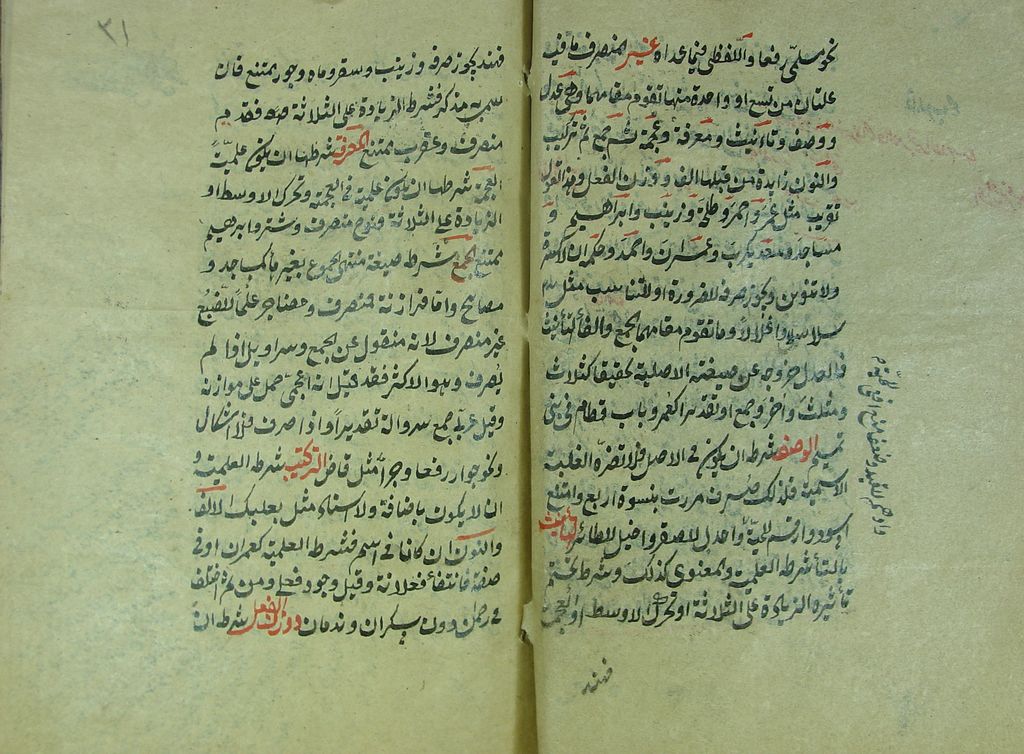 نحو مسلميّ رفعا واللفظي فيما عداه غير المنصرف ما فيه
علتان من تسع او واحدة منها تقوم مقامهما وهي عدل
ووصف وتانيث ومعرفة وعجمة ثم جمع ثم تركيب
والنون زايدة من قبلها الف ووزن الفعل وهذا القول
تقريب مثل عمر واحمر وطلحة وزينب وابراهيم و
مساجد ومعديكرب وعمران واحمد وحكمه ان لا كسرة
ولا تنوين ويجوز صرفه للضرورة او للتناسب مثل
سلاسلا واغلالا وما تقوم مقامهما الجمع والفا التانيث
فالعدل خروجه عن صيغته الاصلية تحقيقا كثلاث
ومثلث واخر وجمع او تقديرا كعمر وباب قطام في بني
تميم الوصف شرطه ان يكون في الاصل فلا تضره الغلبة
الاسمية فلذلك صرف مررت بنسوة اربع وامتنع
اسود وارقم للحية واجدل للصقر واخيل للطائر التأنيث
بالتا شرطه العلمية والمعنوي كذلك وشرط تحتم
تأثيره الزيادة على الثلاثة او تحرك الاوسط او العجمة
فهند
٣١
فهند يجوز صرفه وزينب وسقر وماه وجور ممتنع فان
سمي به مذكر فشرطه الزيادة على الثلاثة فقدم
منصرف وعقرب ممتنع المعرفة شرطها ان يكون علمية
العجمة شرطها ان يكون علمية في العجمية وتحرك الاوسط او
الزيادة على الثلاثة فنوح منصرف وشتر وابرهيم
ممتنع الجمع شرطه صيغة منتهى الجموع بغير ها كمساجد و
مصابيح واما فرازنة فمنصرف وحضاجر علما للضبع
غير منصرف لانه منقول عن الجمع وسراويل اذا لم
يصرف وهو الاكثر فقد قيل انه اعجمي حمل على موازنه
وقيل عربي جمع سروالة تقديرا واذا صرف فلا اشكال
ونحو جوار رفعا وجرا مثل قاض التركيب شرطه العلمية و
ان لا يكون باضافة ولا اسناد مثل بعلبك الالف
والنون ان كانا في اسم فشرطه العلمية كعمران او في
صفة فانتفاء فعلانة وقيل وجود فعلى ومن ثم اختلف
في رحمن دون سكران وندمان ووزن الفعل شرطه ان